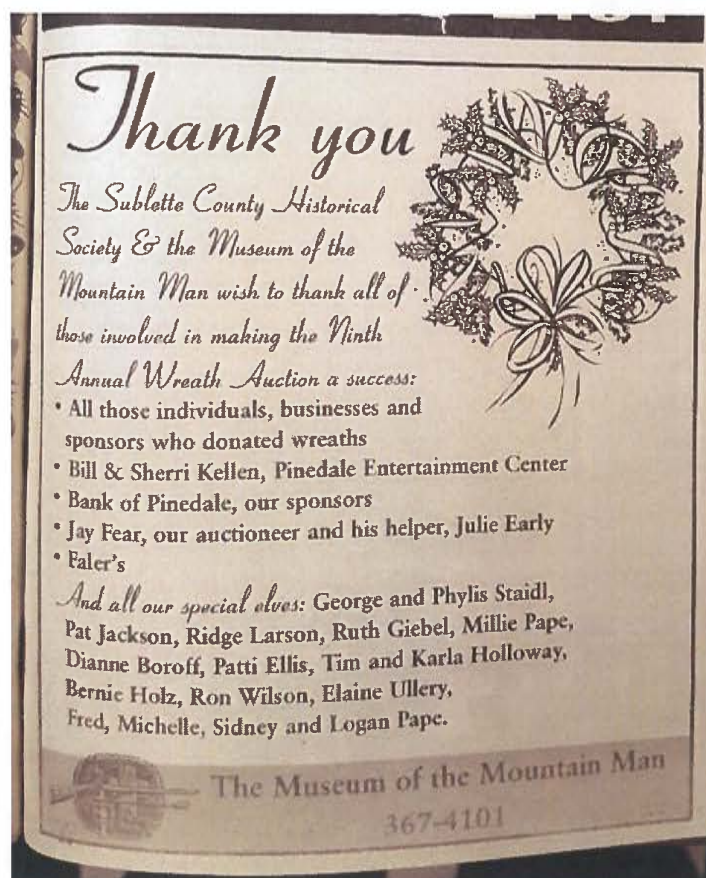 Thank you
The Sublette County Historical
Society & the Museum of the
Mountain Man wish to thank all of
those involved in making the Ninth
Annual Wreath Auction a success:
• All those individuals, businesses and
sponsors who donated wreaths
• Bill & Sherri Kellen, Pinedale Entertainment Center
• Bank of Pinedale, our sponsors
• Jay Fear, our auctioneer and his helper, Julie Early
• Faler's
And all our special elves: George and Phylis Staidl,
Pat Jackson, Ridge Larson, Ruth Giebel, Millie Pape,
Dianne Boroff, Patti Ellis, Tim and Karla Holloway,
Bernie Holz, Ron Wilson, Elaine Ullery,
Fred, Michelle, Sidney and Logan Pape.
The Museum of the Mountain Man
367-4101